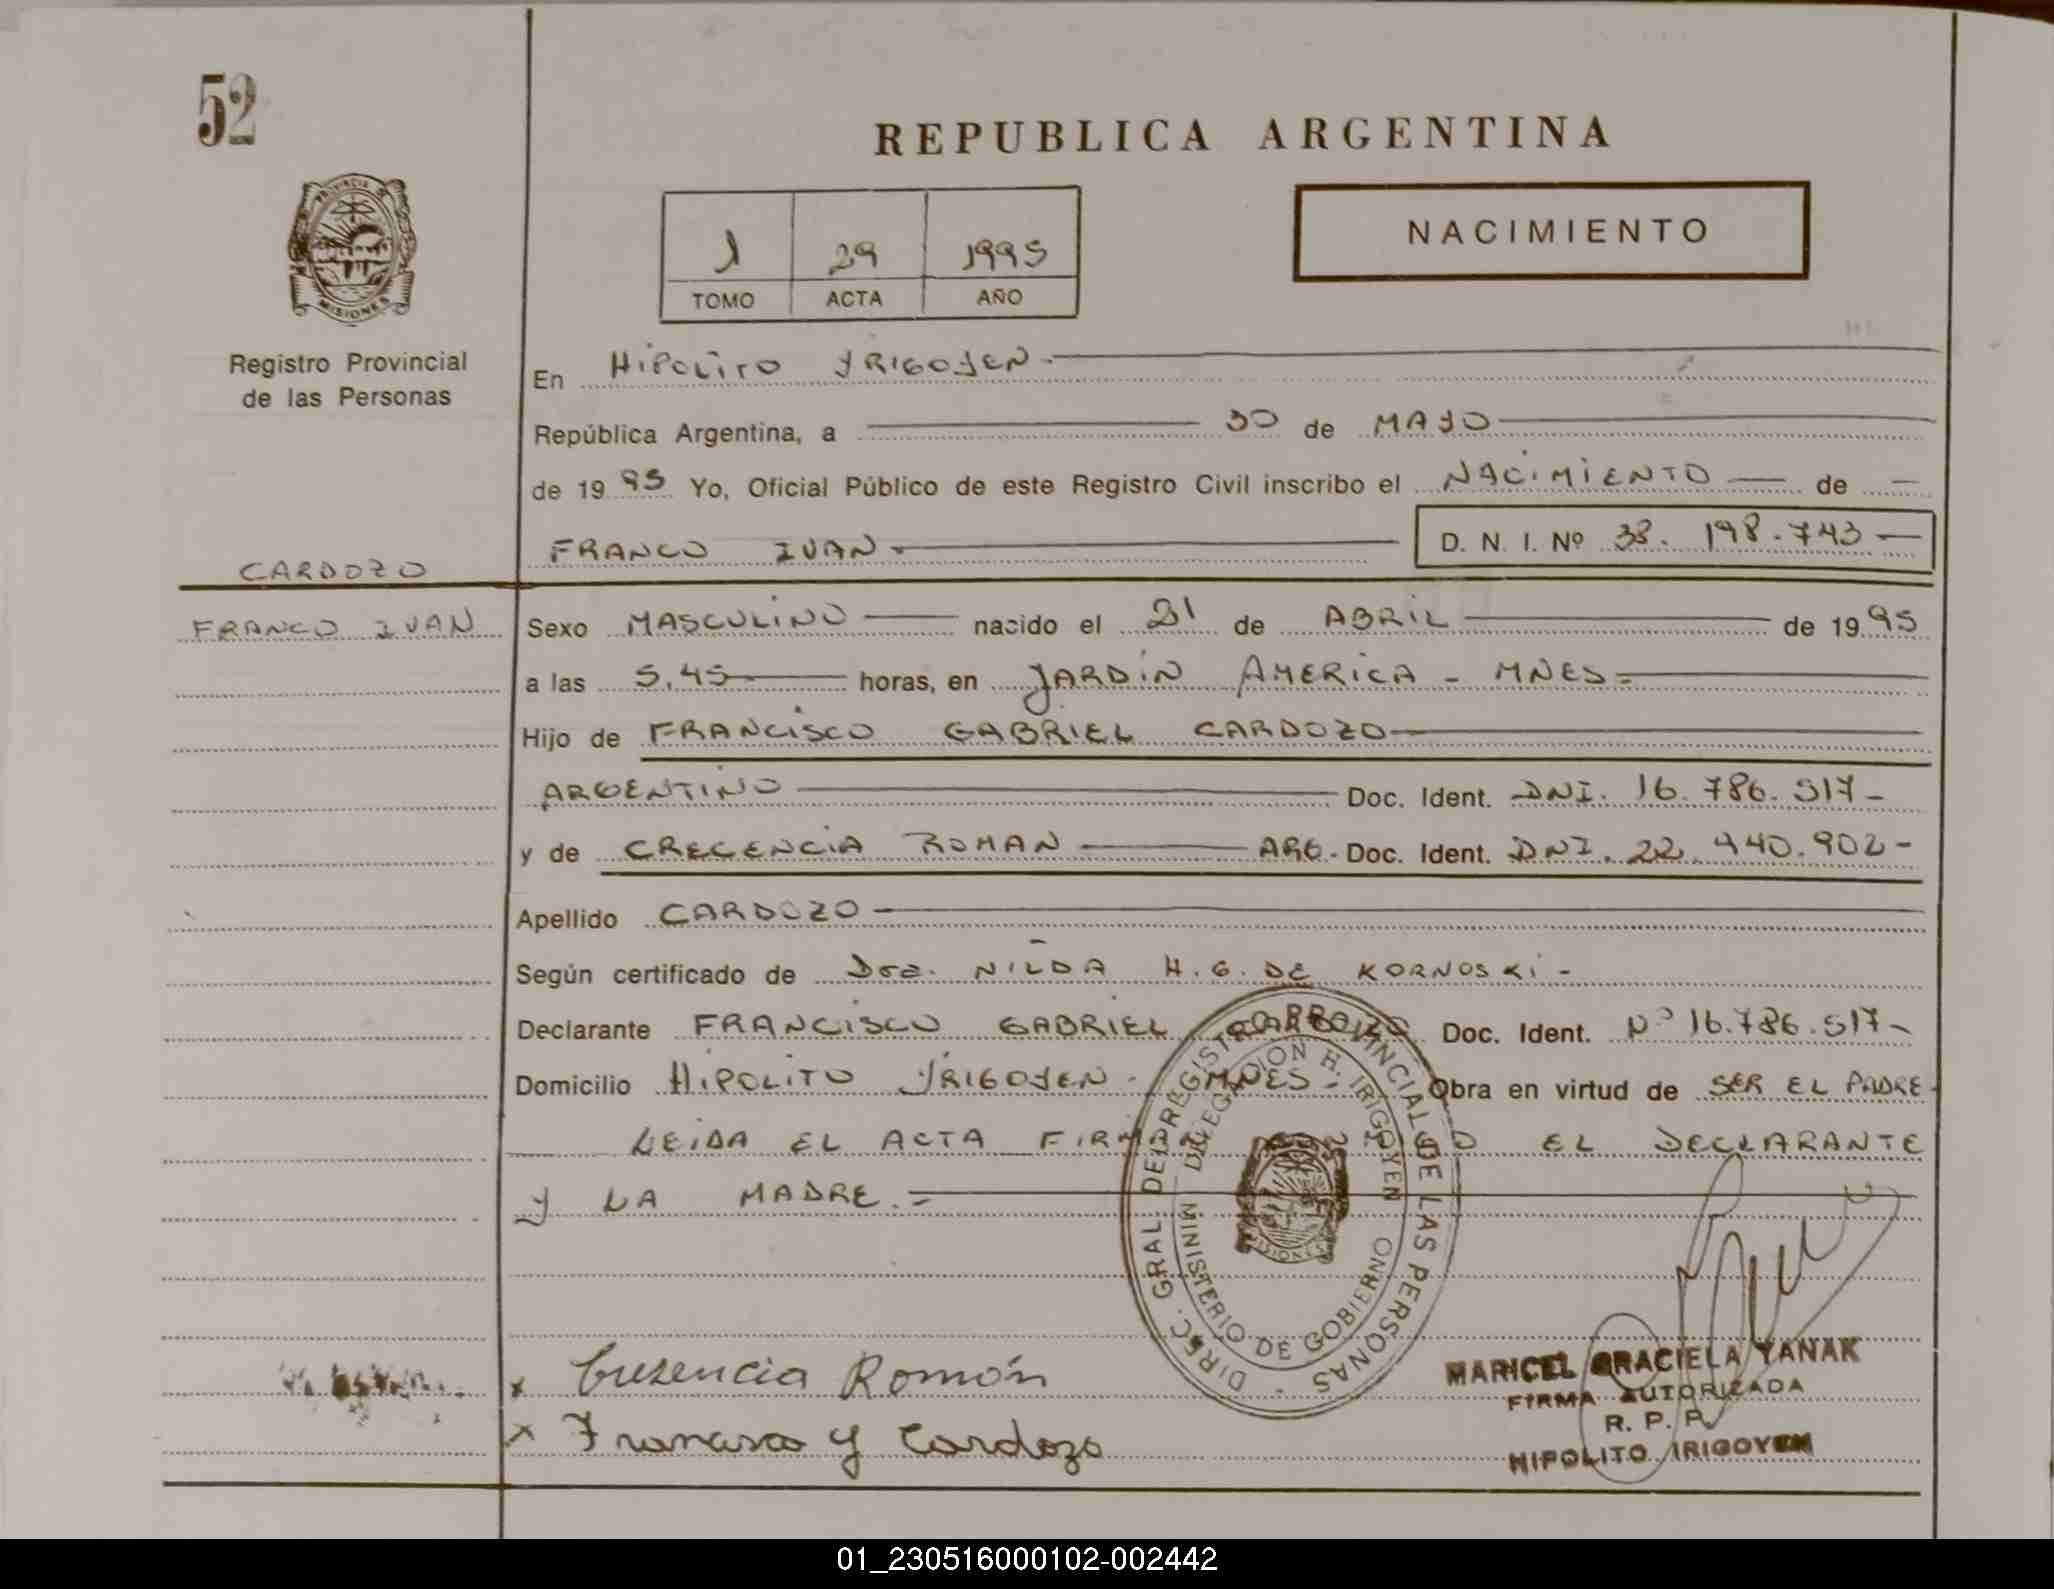 52
REPUBLICA ARGENTINA
PROVINCIA DE
MISIONES
NACIMIENTO
1 29 1995
TOMO ACTA AÑO
Registro Provincial
de las Personas
En HIPOLITO YRIGOYEN.
República Argentina, a 30 de MAYO
de 1995 Yo, Oficial Público de este Registro Civil inscribo el NACIMIENTO de
FRANCO IVAN D. N. I. Nº 38.198.743
CARDOZO
FRANCO IVAN
Sexo MASCULINO nacido el 21 de ABRIL de 1995
a las 5,45 horas, en JARDIN AMERICA - MNES=
Hijo de FRANCISCO GABRIEL CARDOZO
ARGENTINO Doc. Ident. DNI. 16.786.517-
y de CRECENCIA ROMAN ARG. Doc. Ident. DNI. 22.440.902-
Apellido CARDOZO
Según certificado de Dra. NILDA H. G. DE KORNOSKI-
Declarante FRANCISCO GABRIEL CARDOZO Doc. Ident. Nº 16.786.517-
Domicilio HIPOLITO YRIGOYEN - MNES- Obra en virtud de SER EL PADRE-
LEIDA EL ACTA EL DECLARANTE
Y LA MADRE.=
DIREC. GRAL. DEL REGISTRO PROVINCIAL DE LAS PERSONAS
DELEGACION H. IRIGOYEN
MINISTERIO DE GOBIERNO
MISIONES
x Cresencia Román
x Francisco y Cardozo
MARICEL GRACIELA YANAK
FIRMA AUTORIZADA
R. P. P.
HIPOLITO IRIGOYEN
01_230516000102-002442